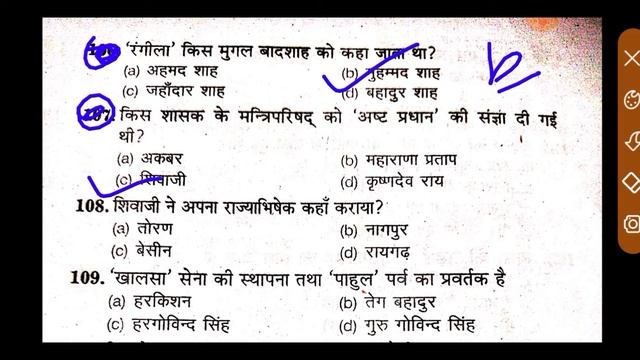 'रंगीला' किस मुगल बादशाह को कहा जाता था?
(a) अहमद शाह (b) मुहम्मद शाह
(c) जहाँदार शाह (d) बहादुर शाह
107. किस शासक के मन्त्रिपरिषद् को 'अष्ट प्रधान' की संज्ञा दी गई
थी?
(a) अकबर (b) महाराणा प्रताप
(c) शिवाजी (d) कृष्णदेव राय
108. शिवाजी ने अपना राज्याभिषेक कहाँ कराया?
(a) तोरण (b) नागपुर
(c) बेसीन (d) रायगढ़
109. 'खालसा' सेना की स्थापना तथा 'पाहुल' पर्व का प्रवर्तक है
(a) हरकिशन (b) तेग बहादुर
(c) हरगोविन्द सिंह (d) गुरु गोविन्द सिंह